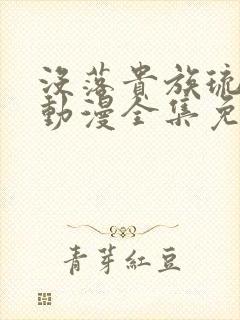 没落貴族琉
動漫全集免
青芽紅豆